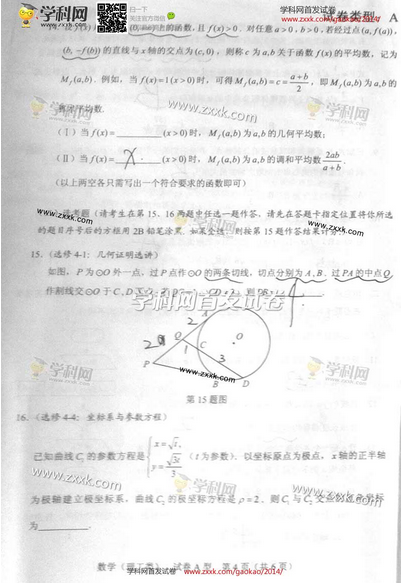 学科网首发试卷
www.zxxk.com/gaokao/2014/
学科网
WWW.ZXXK.COM
扫一下
试卷类型 A
上的函数,且 f(x)>0. 对任意 a>0, b>0,若经过点(a, f(a)),
(b, -f(b)) 的直线与 x 轴的交点为 (c, 0),则称 c 为 a,b 关于函数 f(x) 的平均数,记为
M_f(a,b). 例如,当 f(x)=1(x>0) 时,可得 M_f(a,b)=c=(a+b)/2,即 M_f(a,b) 为 a,b 的
平均数.
(Ⅰ)当 f(x)=______(x>0) 时,M_f(a,b) 为 a,b 的几何平均数;
(Ⅱ)当 f(x)=__x__(x>0) 时,M_f(a,b) 为 a,b 的调和平均数 2ab/(a+b).
(以上两空各只需写出一个符合要求的函数即可)
www.zxxk.com
(请考生在第 15、16 两题中任选一题作答,请先在答题卡指定位置将你所选
的题目序号后的方框用 2B 铅笔涂黑. 如果全选,则按第 15 题作答结果计分.)
15.(选修 4-1:几何证明选讲)
如图,P 为⊙O 外一点,过 P 点作⊙O 的两条切线,切点分别为 A, B. 过 PA 的中点 Q
作割线交⊙O 于 C, D
学科网首发试卷
2
A
Q
1
C
O
3
P
B
D
www.zxxk.com
学科网
第 15 题图
16.(选修 4-4:坐标系与参数方程)
已知曲线 C₁ 的参数方程是 { x=√t, y=√(3t)/3 (t 为参数). 以坐标原点为极点,x 轴的正半轴
www.zxxk.com
为极轴建立极坐标系,曲线 C₂ 的极坐标方程是 ρ=2. 则 C₁ 与 C₂ 交点的直角坐标
为______.
数学(理工类) 试卷 A 型 第 4 页(共 6 页)
学科网首发试卷
www.zxxk.com/gaokao/2014/